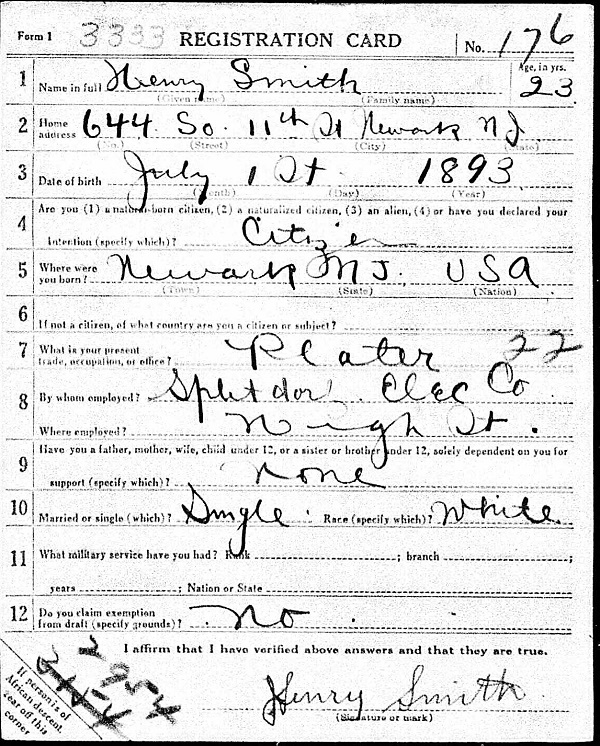 Form 1 3333 REGISTRATION CARD No. 176
1 Name in full Henry Smith Age, in yrs. 23
(Given name) (Family name)
2 Home address 644 So. 11th St Newark NJ.
(No.) (Street) (City) (State)
3 Date of birth July 1 St 1893
(Month) (Day) (Year)
4 Are you (1) a natural-born citizen, (2) a naturalized citizen, (3) an alien, (4) or have you declared your
intention (specify which)? Citizen
5 Where were you born? Newark N.J. USA
(Town) (State) (Nation)
6 If not a citizen, of what country are you a citizen or subject?
7 What is your present trade, occupation, or office? Plater 22
8 By whom employed? Splitdorf Elec Co
Where employed? High St.
9 Have you a father, mother, wife, child under 12, or a sister or brother under 12, solely dependent on you for
support (specify which)? None
10 Married or single (which)? Single Race (specify which)? White
11 What military service have you had? Rank ; branch ;
years ; Nation or State
12 Do you claim exemption from draft (specify grounds)? No
I affirm that I have verified above answers and that they are true.
If person is of African descent, tear off this corner
Henry Smith
(Signature or mark)